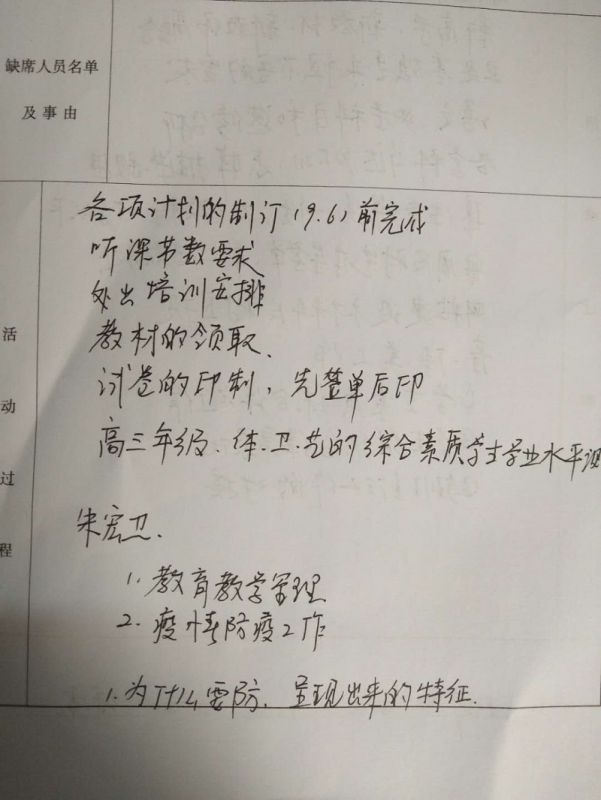 缺席人员名单
及事由
活动过程
各项计划的制订(9.6)前完成
听课节数要求
外出培训安排
教材的领取、
试卷的印制，先签单后印
高三年级、体、卫、艺的综合素质学生学业水平测
朱宏卫、
1. 教育教学管理
2. 疫情防疫工作
1. 为什么要防、呈现出来的特征、